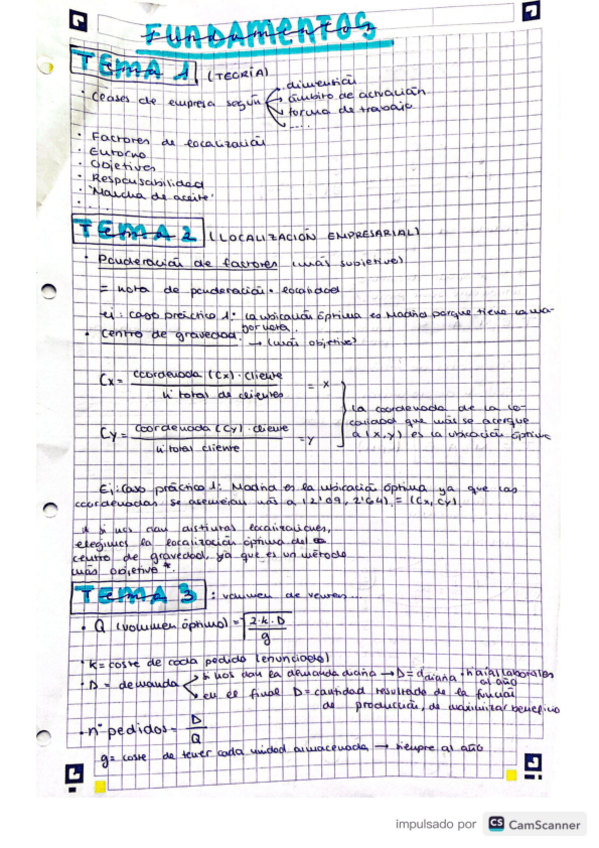 FUNDAMENTOS
TEMA 1 (TEORÍA)
· Clases de empresa según → dimensión
→ ámbito de actuación
→ forma de trabajo
→ ....
· Factores de localización
· Entorno
· Objetivos
· Responsabilidad
· 'Mancha de aceite'
· ...
TEMA 2 (LOCALIZACIÓN EMPRESARIAL)
· Ponderación de factores (más subjetivo)
= nota de ponderación · localidad
ej: caso práctico 1: La ubicación óptima es Madrid porque tiene la ma-
yor nota.
· Centro de gravedad: → (más objetivo)
Cx = coordenada (Cx) · cliente / nº total de clientes = x
Cy = coordenada (Cy) · cliente / nº total cliente = y
La coordenada de la lo-
calidad que más se acerque
a (x,y) es la ubicación óptima
Ej: Caso práctico 1: Madrid es la ubicación óptima ya que las
coordenadas se asemejan más a (2'09, 2'64) = (Cx, Cy)
* si nos dan distintas localizaciones,
elegimos la localización óptima del
centro de gravedad, ya que es un método
más objetivo *.
TEMA 3 : volumen de ...
· Q (volumen óptimo) = √(2·k·D / g)
· k = coste de cada pedido (enunciado)
· D = demanda → si nos dan la demanda diaria → D = d diaria · n días laborales
al año
→ en el final D = cantidad resultado de la función
de producción, de maximizar beneficio
· nº pedidos = D / Q
g = coste de tener cada unidad almacenada → siempre al año
impulsado por CS CamScanner